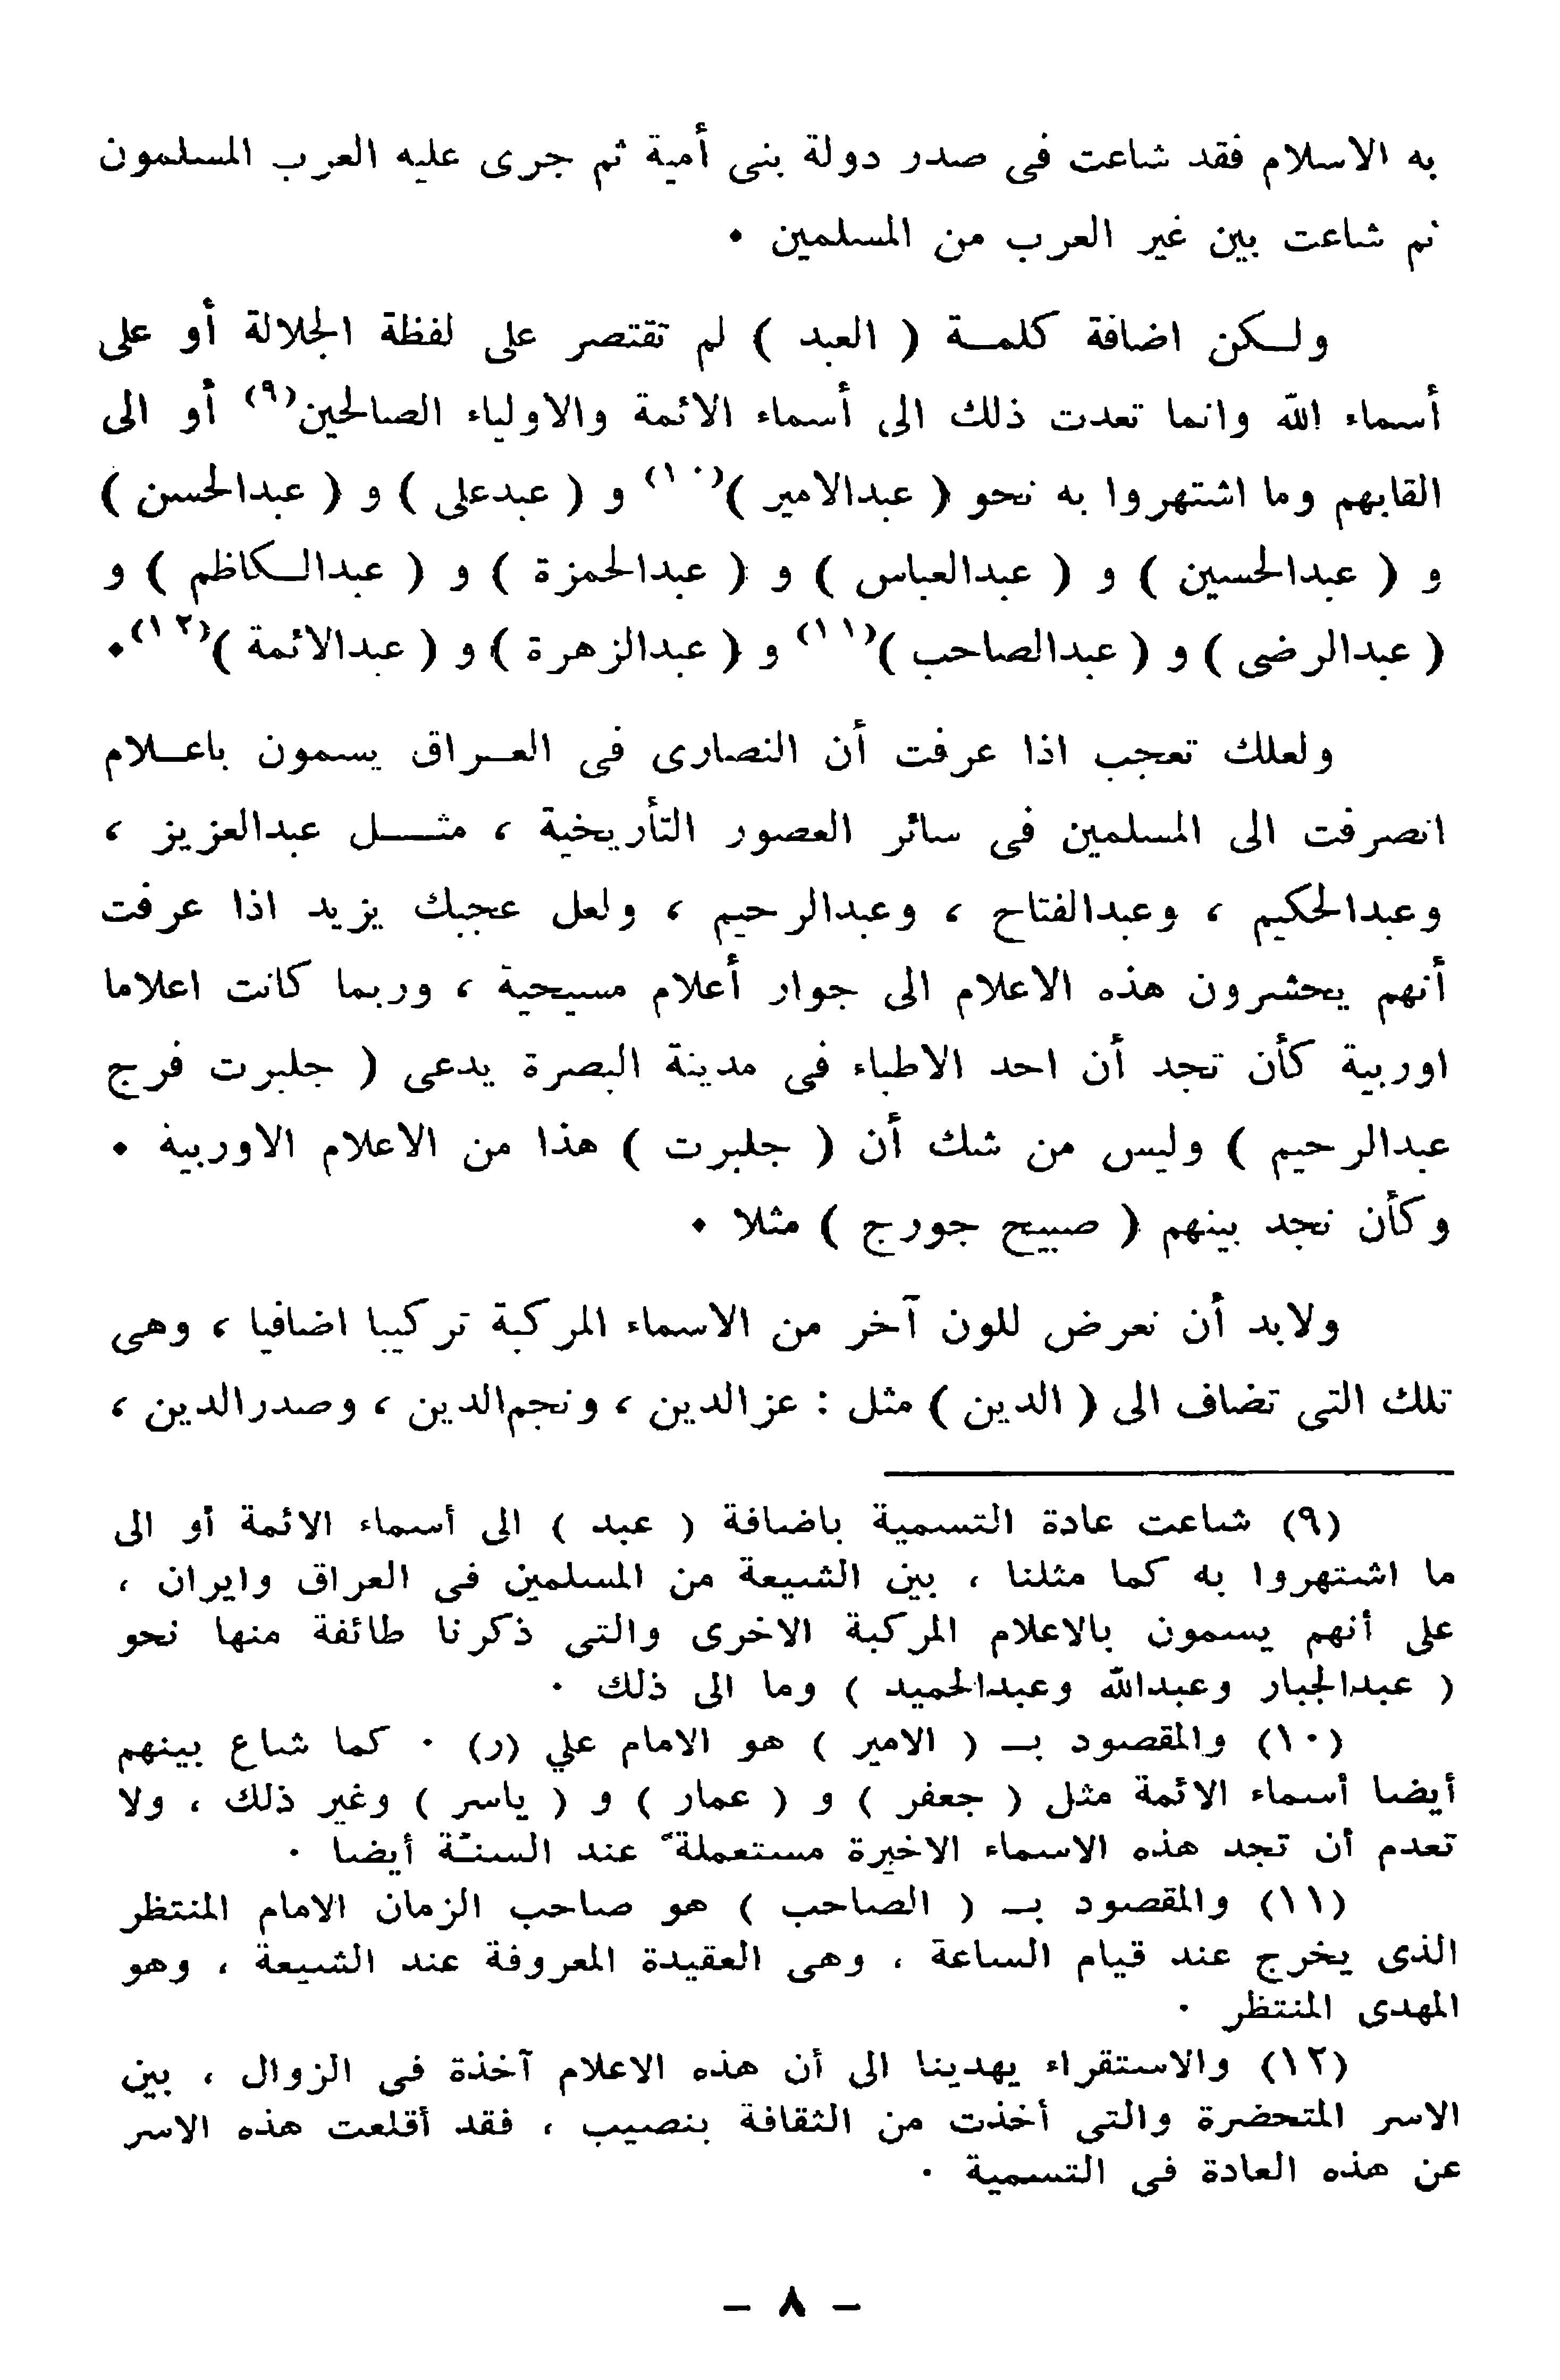 به الاسلام فقد شاعت فى صدر دولة بنى أمية ثم جرى عليه العرب المسلمون
ثم شاعت بين غير العرب من المسلمين ٠
ولـكن اضافة كلمـة ( العبد ) لم تقتصر على لفظة الجلالة أو على
أسماء الله وانما تعدت ذلك الى أسماء الائمة والاولياء الصالحين(٩) أو الى
القابهم وما اشتهروا به نحو ( عبدالامير )(١٠) و ( عبدعلى ) و ( عبدالحسن )
و ( عبدالحسين ) و ( عبدالعباس ) و ( عبدالحمزة ) و ( عبدالـكاظم ) و
( عبدالرضى ) و ( عبدالصاحب )(١١) و ( عبدالزهرة ) و ( عبدالائمة )(١٢)٠
ولعلك تعجب اذا عرفت أن النصارى فى العـراق يسمون باعـلام
انصرفت الى المسلمين فى سائر العصور التأريخية ، مثـــل عبدالعزيز ،
وعبدالحكيم ، وعبدالفتاح ، وعبدالرحيم ، ولعل عجبك يزيد اذا عرفت
أنهم يحشرون هذه الاعلام الى جوار أعلام مسيحية ، وربما كانت اعلاما
اوربية كأن تجد أن احد الاطباء فى مدينة البصرة يدعى ( جلبرت فرج
عبدالرحيم ) وليس من شك أن ( جلبرت ) هذا من الاعلام الاوربية ٠
وكأن نجد بينهم ( صبيح جورج ) مثلا ٠
ولابد أن نعرض للون آخر من الاسماء المركبة تركيبا اضافيا ، وهى
تلك التى تضاف الى ( الدين ) مثل : عزالدين ، ونجم‌الدين ، وصدرالدين ،
(٩) شاعت عادة التسمية باضافة ( عبد ) الى أسماء الائمة أو الى
ما اشتهروا به كما مثلنا ، بين الشيعة من المسلمين فى العراق وايران ،
على أنهم يسمون بالاعلام المركبة الاخرى والتى ذكرنا طائفة منها نحو
( عبدالجبار وعبدالله وعبدالحميد ) وما الى ذلك ٠
(١٠) والمقصود بـ ( الامير ) هو الامام علي (ر) ٠ كما شاع بينهم
أيضا أسماء الائمة مثل ( جعفر ) و ( عمار ) و ( ياسر ) وغير ذلك ، ولا
تعدم أن تجد هذه الاسماء الاخيرة مستعملة ً عند السنّة أيضا ٠
(١١) والمقصود بـ ( الصاحب ) هو صاحب الزمان الامام المنتظر
الذى يخرج عند قيام الساعة ، وهى العقيدة المعروفة عند الشيعة ، وهو
المهدى المنتظر ٠
(١٢) والاستقراء يهدينا الى أن هذه الاعلام آخذة فى الزوال ، بين
الاسر المتحضرة والتى أخذت من الثقافة بنصيب ، فقد أقلعت هذه الاسر
عن هذه العادة فى التسمية ٠
– ٨ –